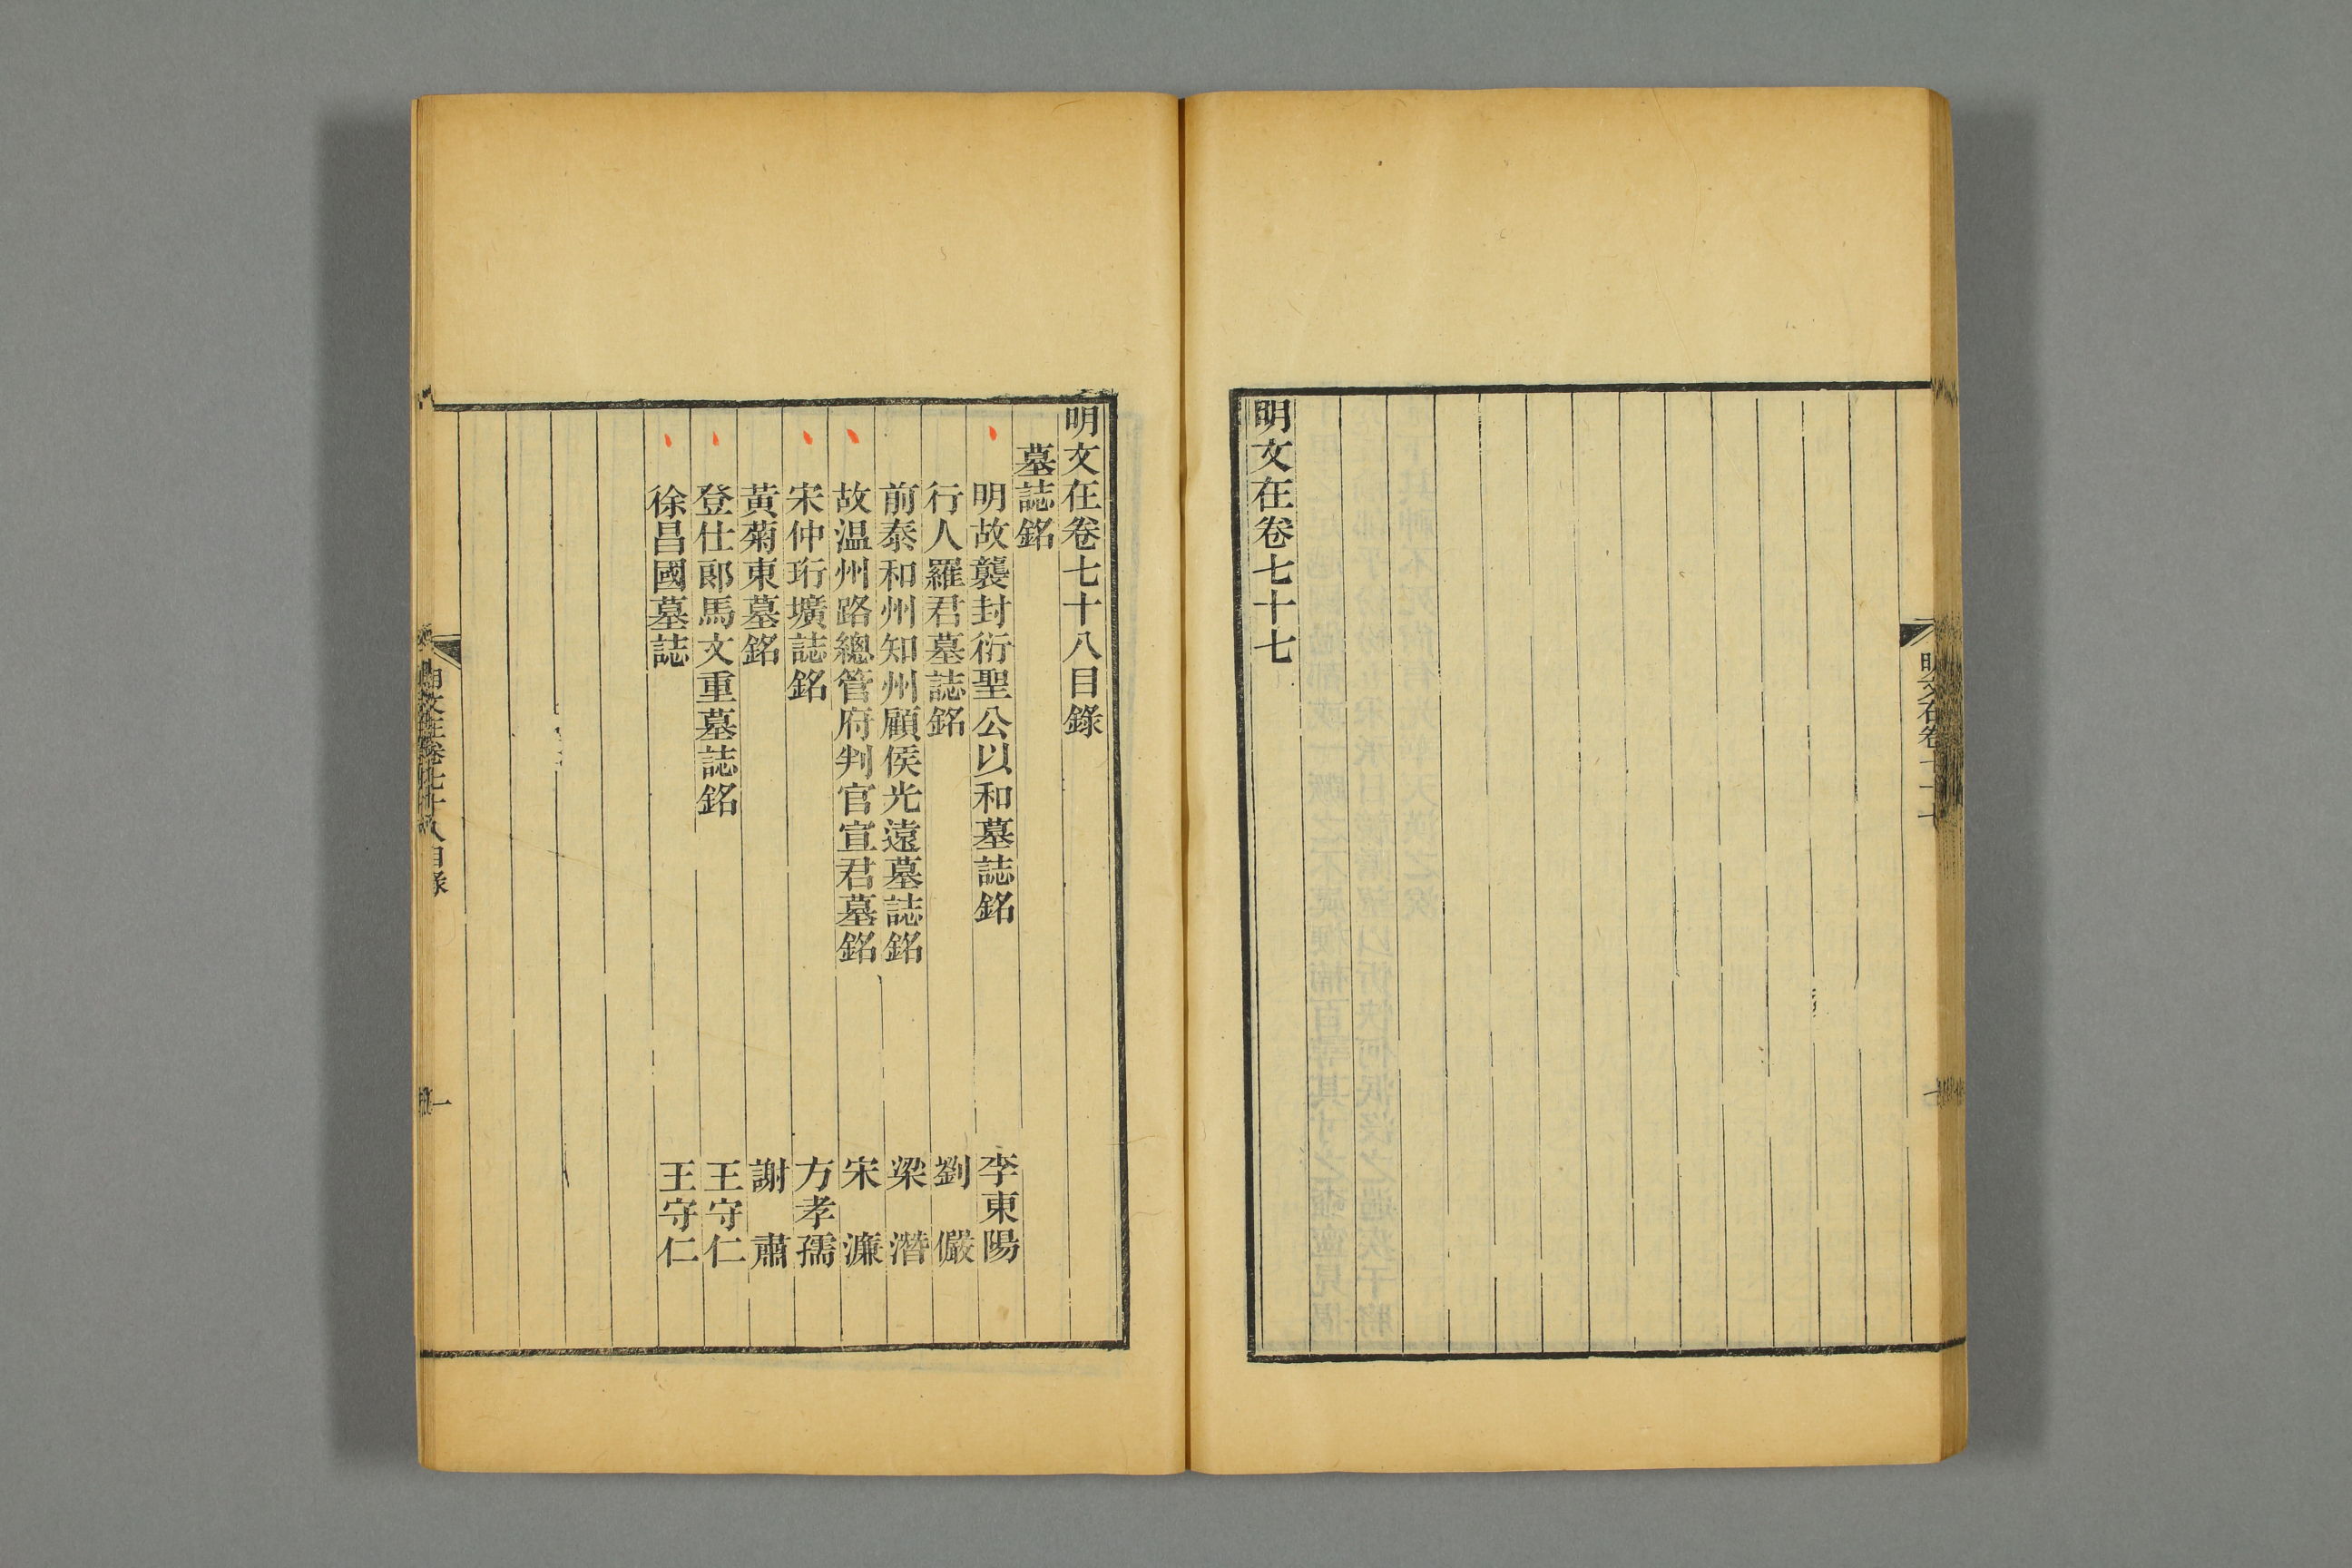 明文在卷七十七
明文在卷七十八目錄
墓誌銘
明故襲封衍聖公以和墓誌銘 李東陽
行人羅君墓誌銘 劉儼
前泰和州知州顧侯光遠墓誌銘 梁潛
故温州路總管府判官宣君墓銘 宋濂
宋仲珩壙誌銘 方孝孺
黃菊東墓銘 謝肅
登仕郎馬文重墓誌銘 王守仁
徐昌國墓誌 王守仁
明文在卷七十八目錄
一